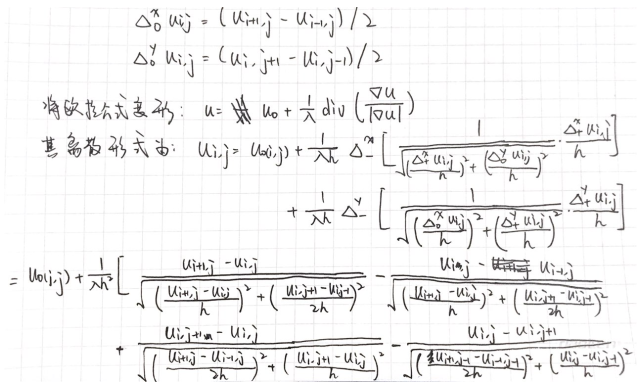 Δ₀ˣ uᵢⱼ = (uᵢ₊₁,ⱼ - uᵢ₋₁,ⱼ)/2
Δ₀ʸ uᵢ,ⱼ = (uᵢ,ⱼ₊₁ - uᵢ,ⱼ₋₁)/2
将欧拉公式变形: u = u₀ + \frac{1}{λ} div (\frac{∇u}{|∇u|})
其离散形式为: uᵢ,ⱼ = u₀(i,j) + \frac{1}{λh} Δ₋ˣ [ \frac{1}{\sqrt{(\frac{Δ₊ˣ uᵢ,ⱼ}{h})² + (\frac{Δ₀ʸ uᵢ,ⱼ}{h})²}} · \frac{Δ₊ˣ uᵢ,ⱼ}{h} ]
+ \frac{1}{λh} Δ₋ʸ [ \frac{1}{\sqrt{(\frac{Δ₀ˣ uᵢ,ⱼ}{h})² + (\frac{Δ₊ʸ uᵢ,ⱼ}{h})²}} · \frac{Δ₊ʸ uᵢ,ⱼ}{h} ]
= u₀(i,j) + \frac{1}{λh²} [ \frac{uᵢ₊₁,ⱼ - uᵢ,ⱼ}{\sqrt{(\frac{uᵢ₊₁,ⱼ - uᵢ,ⱼ}{h})² + (\frac{uᵢ,ⱼ₊₁ - uᵢ,ⱼ₋₁}{2h})²}} - \frac{uᵢ,ⱼ - uᵢ₋₁,ⱼ}{\sqrt{(\frac{uᵢ₊₁,ⱼ - uᵢ,ⱼ}{h})² + (\frac{uᵢ,ⱼ₊₁ - uᵢ,ⱼ₋₁}{2h})²}}
+ \frac{uᵢ,ⱼ₊₁ - uᵢ,ⱼ}{\sqrt{(\frac{uᵢ₊₁,ⱼ - uᵢ₋₁,ⱼ}{2h})² + (\frac{uᵢ,ⱼ₊₁ - uᵢ,ⱼ}{h})²}} - \frac{uᵢ,ⱼ - uᵢ,ⱼ₊₁}{\sqrt{(\frac{uᵢ₊₁,ⱼ₋₁ - uᵢ₋₁,ⱼ₋₁}{2h})² + (\frac{uᵢ,ⱼ - uᵢ,ⱼ₋₁}{h})²}}